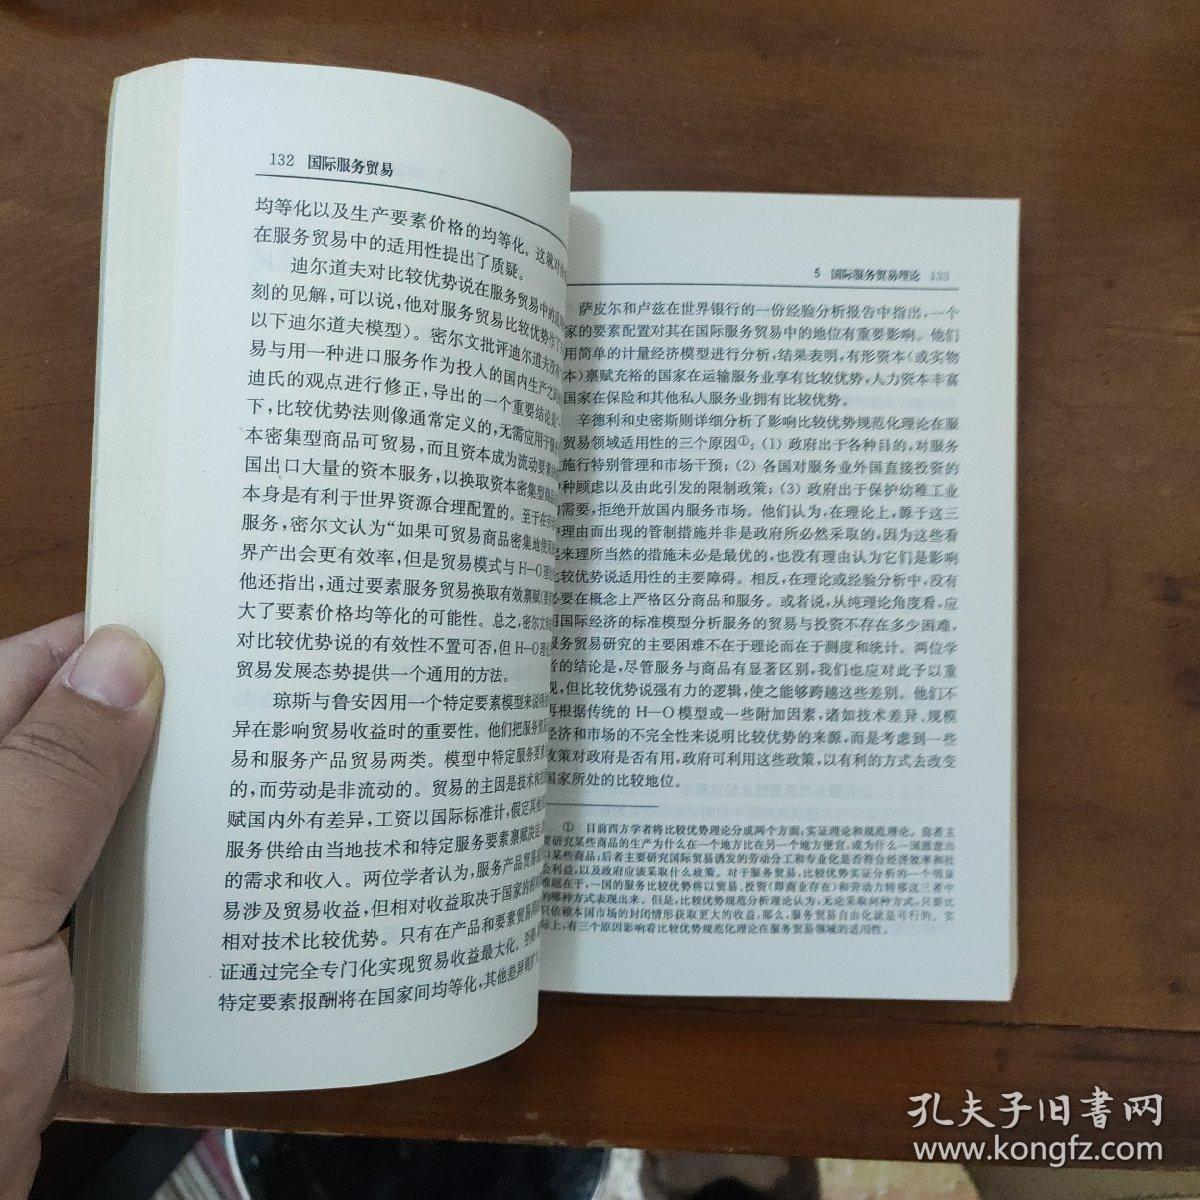 132 国际服务贸易
均等化以及生产要素价格的均等化。这就对
在服务贸易中的适用性提出了质疑。
迪尔道夫对比较优势说在服务贸易中的适
刻的见解,可以说,他对服务贸易比较优势作了
以下迪尔道夫模型)。密尔文批评迪尔道夫没有
易与用一种进口服务作为投人的国内生产之间
迪氏的观点进行修正,导出的一个重要结论是
下,比较优势法则像通常定义的,无需应用于
本密集型商品可贸易,而且资本成为流动要素
国出口大量的资本服务,以换取资本密集型商品
本身是有利于世界资源合理配置的。至于在
服务,密尔文认为“如果可贸易商品密集地使用
界产出会更有效率,但是贸易模式与H—O理
他还指出,通过要素服务贸易换取有效禀赋
大了要素价格均等化的可能性。总之,密尔文
对比较优势说的有效性不置可否,但H—O理
贸易发展态势提供一个通用的方法。
琼斯与鲁安因用一个特定要素模型来说明
异在影响贸易收益时的重要性。他们把服务贸
易和服务产品贸易两类。模型中特定服务要素
的,而劳动是非流动的。贸易的主因是技术和
赋国内外有差异,工资以国际标准计,假定其他
服务供给由当地技术和特定服务要素禀赋决定
的需求和收入。两位学者认为,服务产品贸易
易涉及贸易收益,但相对收益取决于国家的
相对技术比较优势。只有在产品和要素贸易
证通过完全专门化实现贸易收益最大化。否则
特定要素报酬将在国家间均等化,其他差异则
5 国际服务贸易理论 133
萨皮尔和卢兹在世界银行的一份经验分析报告中指出,一个
家的要素配置对其在国际服务贸易中的地位有重要影响。他们
用简单的计量经济模型进行分析,结果表明,有形资本(或实物
本)禀赋充裕的国家在运输服务业享有比较优势,人力资本丰富
国家在保险和其他私人服务业拥有比较优势。
辛德利和史密斯则详细分析了影响比较优势规范化理论在服
贸易领域适用性的三个原因①:(1)政府出于各种目的,对服务
施行特别管理和市场干预;(2)各国对服务业外国直接投资的
种顾虑以及由此引发的限制政策;(3)政府出于保护幼稚工业
需要,拒绝开放国内服务市场。他们认为,在理论上,源于这三
理由而出现的管制措施并非是政府所必然采取的,因为这些看
起来理所当然的措施未必是最优的,也没有理由认为它们是影响
比较优势说适用性的主要障碍。相反,在理论或经验分析中,没有
必要在概念上严格区分商品和服务。或者说,从纯理论角度看,应
用国际经济的标准模型分析服务的贸易与投资不存在多少困难,
服务贸易研究的主要困难不在于理论而在于测度和统计。两位学
者的结论是,尽管服务与商品有显著区别,我们也应对此予以重
视,但比较优势说强有力的逻辑,使之能够跨越这些差别。他们不
再根据传统的H—O模型或一些附加因素,诸如技术差异、规模
经济和市场的不完全性来说明比较优势的来源,而是考虑到一些
政策对政府是否有用,政府可利用这些政策,以有利的方式去改变
国家所处的比较地位。
① 目前西方学者将比较优势理论分成两个方面:实证理论和规范理论。前者主
要研究某些商品的生产为什么在一个地方比在另一个地方便宜,或为什么一国愿意出
口某些商品;后者主要研究国际贸易诱发的劳动分工和专业化是否符合经济效率和社
会利益,以及政府应该采取什么政策。对于服务贸易,比较优势实证分析的一个明显
难题在于,一国的服务比较优势将以贸易、投资(即商业存在)和劳动力转移这三者中
的哪种方式表现出来。但是,比较优势规范分析理论认为,无论采取何种方式,只要比
只依赖本国市场的封闭情形获取更大的收益,那么,服务贸易自由化就是可行的。实
际上,有三个原因影响着比较优势规范化理论在服务贸易领域的适用性。
孔夫子旧書网
www.kongfz.com